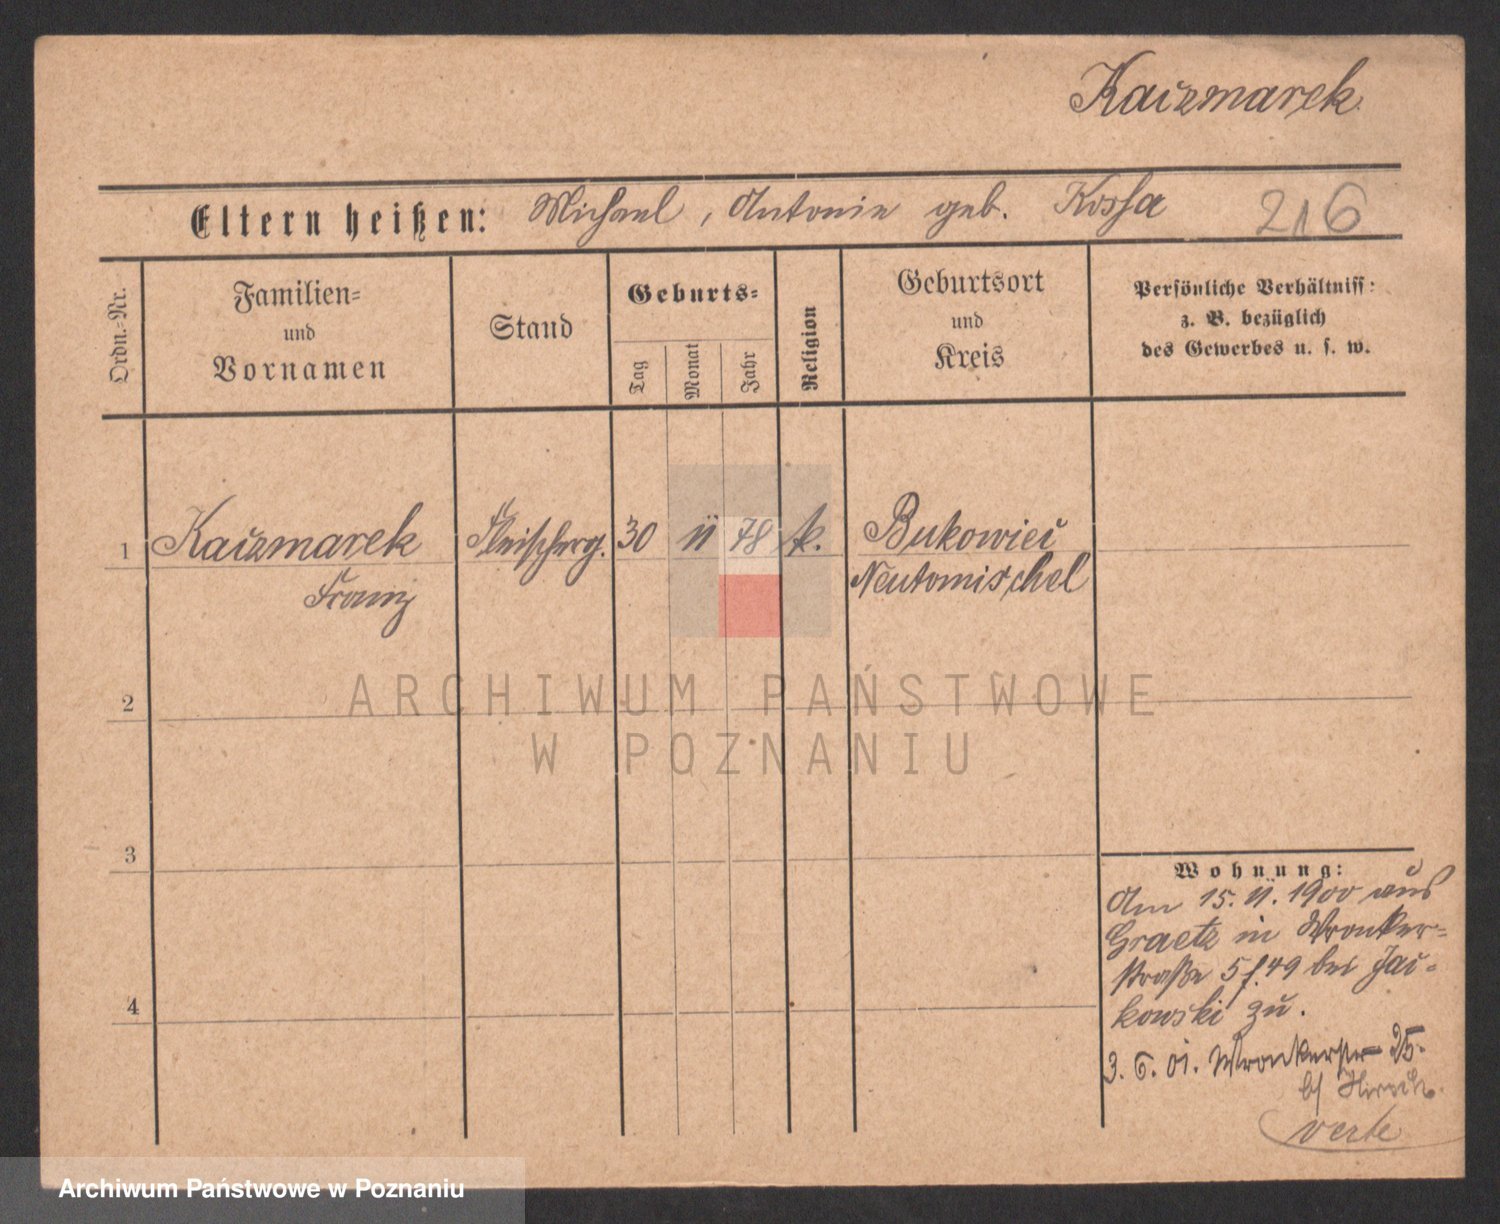 Kaczmarek
Eltern heißen: Michael, Antonie geb. Kossa 216
Ordn.-Nr.
Familien-
und
Vornamen
Stand
Geburts-
Tag
Monat
Jahr
Religion
Geburtsort
und
Kreis
Persönliche Verhältniss:
z. B. bezüglich
des Gewerbes u. s. w.
1 Kaczmarek Fleischerg. 30 11 78 k. Bukowiec
Franz Neutomischel
2
ARCHIWUM PAŃSTWOWE
W POZNANIU
3
4
Wohnung:
Am 15. 11. 1900 aus
Graetz in Wronker-
straße 5 f. 49 bei
kowski zu.
3. 6. 01. Wronkerstr 25.
b/
verte
Archiwum Państwowe w Poznaniu